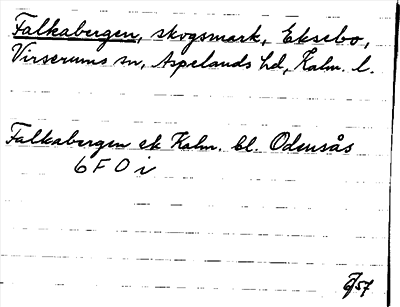 Falkabergen, skogsmark, Eksebo,
Virserums sn, Aspelands hd, Kalm. l.
Falkabergen ek Kalm. bl. Odensås
6 F 0 i
57